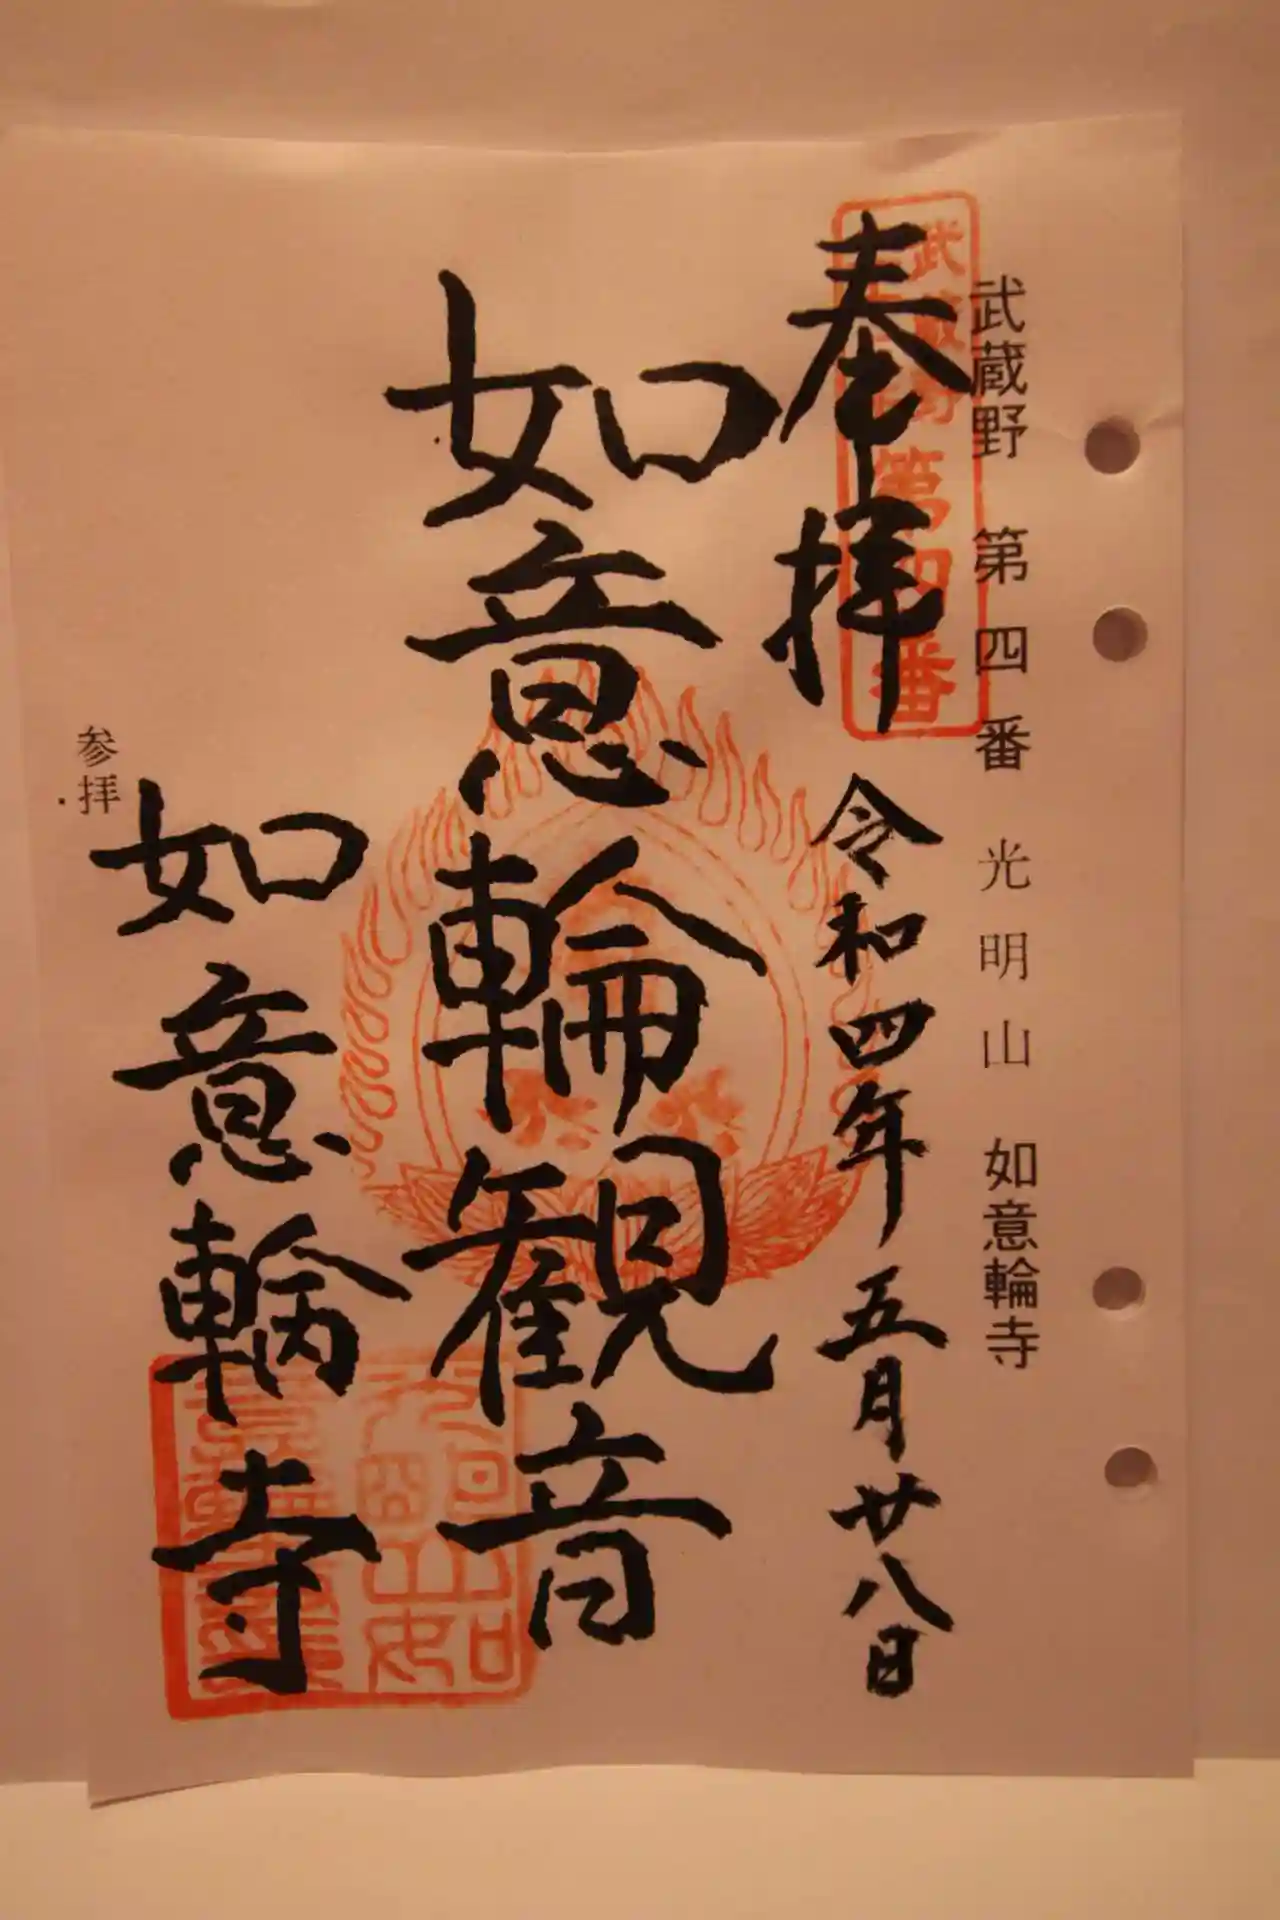 武蔵野 第四番 光明山 如意輪寺
武蔵野第四番
奉拝 令和四年五月廿八日
如意輪観音
如意輪寺
参拝